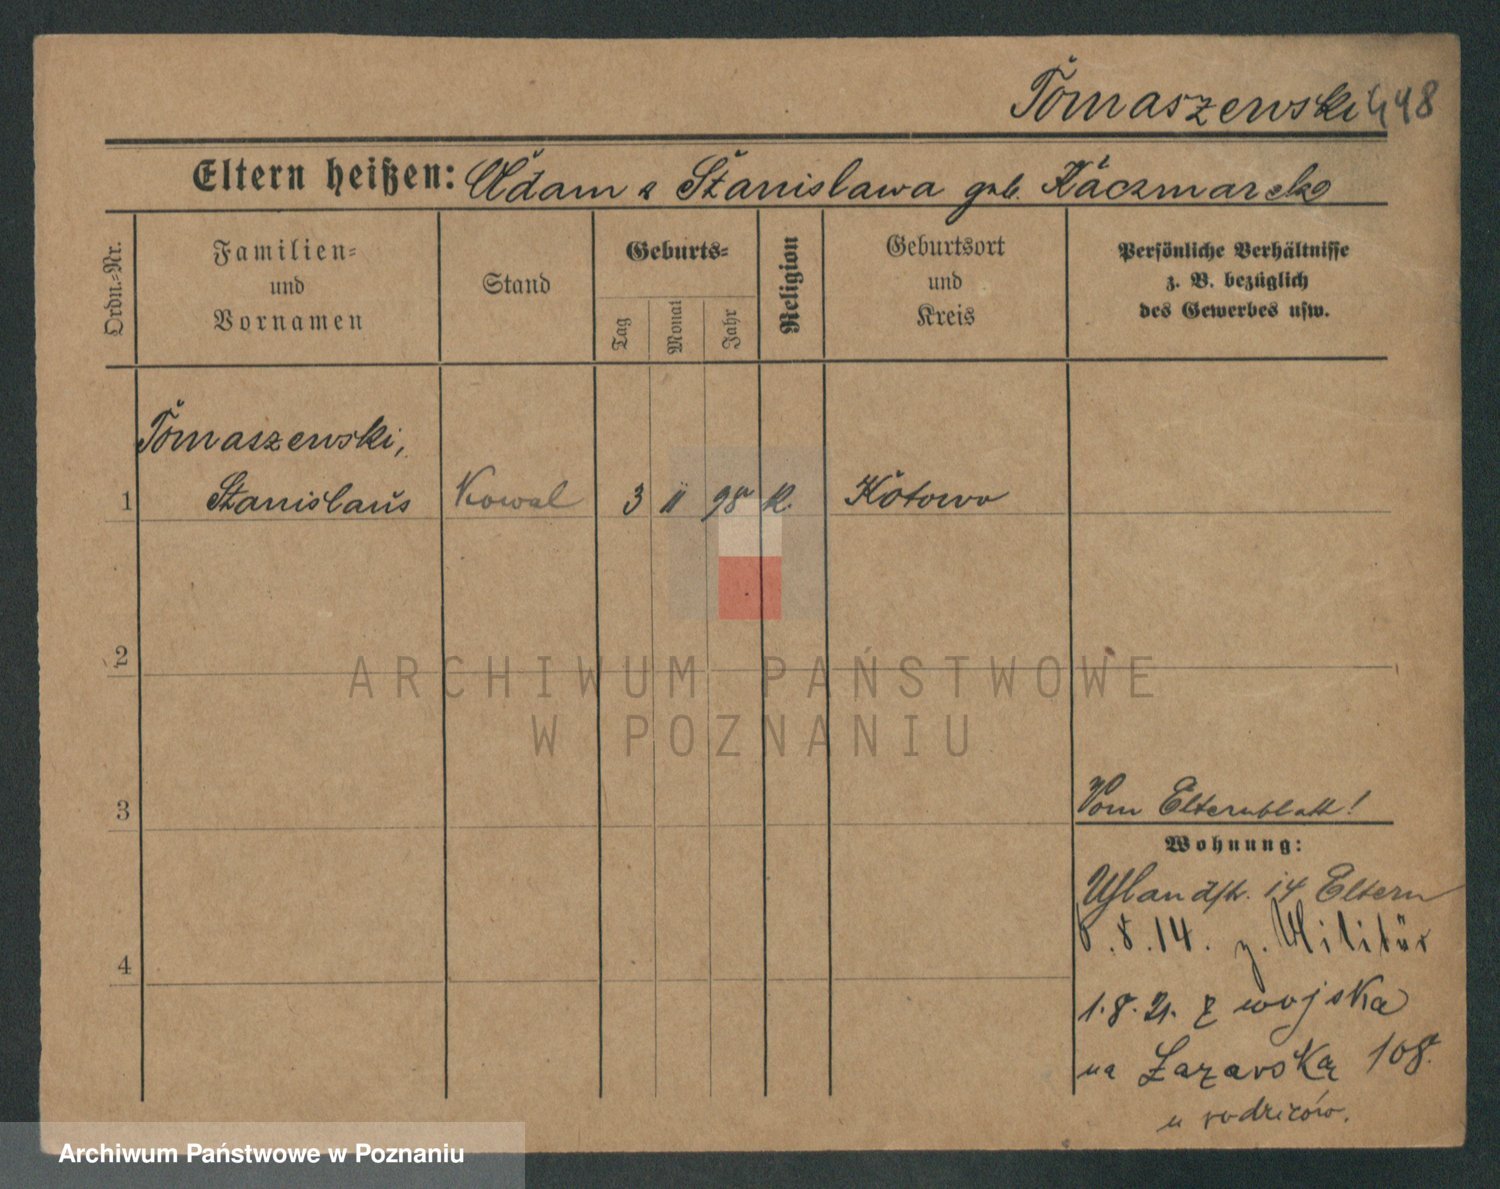 Tomaszewski 448
Eltern heißen: Adam & Stanislawa geb. Kaczmarek
Ordn.-Nr.
Familien-
und
Vornamen
Stand
Geburts-
Tag
Monat
Jahr
Religion
Geburtsort
und
Kreis
Persönliche Verhältnisse
z. B. bezüglich
des Gewerbes usw.
Tomaszewski,
1 Stanislaus Kowal 3 11 98 K. Kotowo
2
3
Vom Elternblatt!
Wohnung:
Uhlandstr. 14 Eltern
8.14. z. Militär
4
1.8.21. z wojska
na Łazarską 108.
u rodziców.
ARCHIWUM PAŃSTWOWE
W POZNANIU
Archiwum Państwowe w Poznaniu